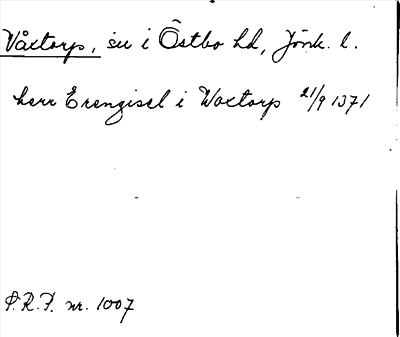 Våxtorp, su i Östbo hd, Jönk. l.
herr Erengisel i Waxtorp 21/9 1371
P.R.F. nr. 1007